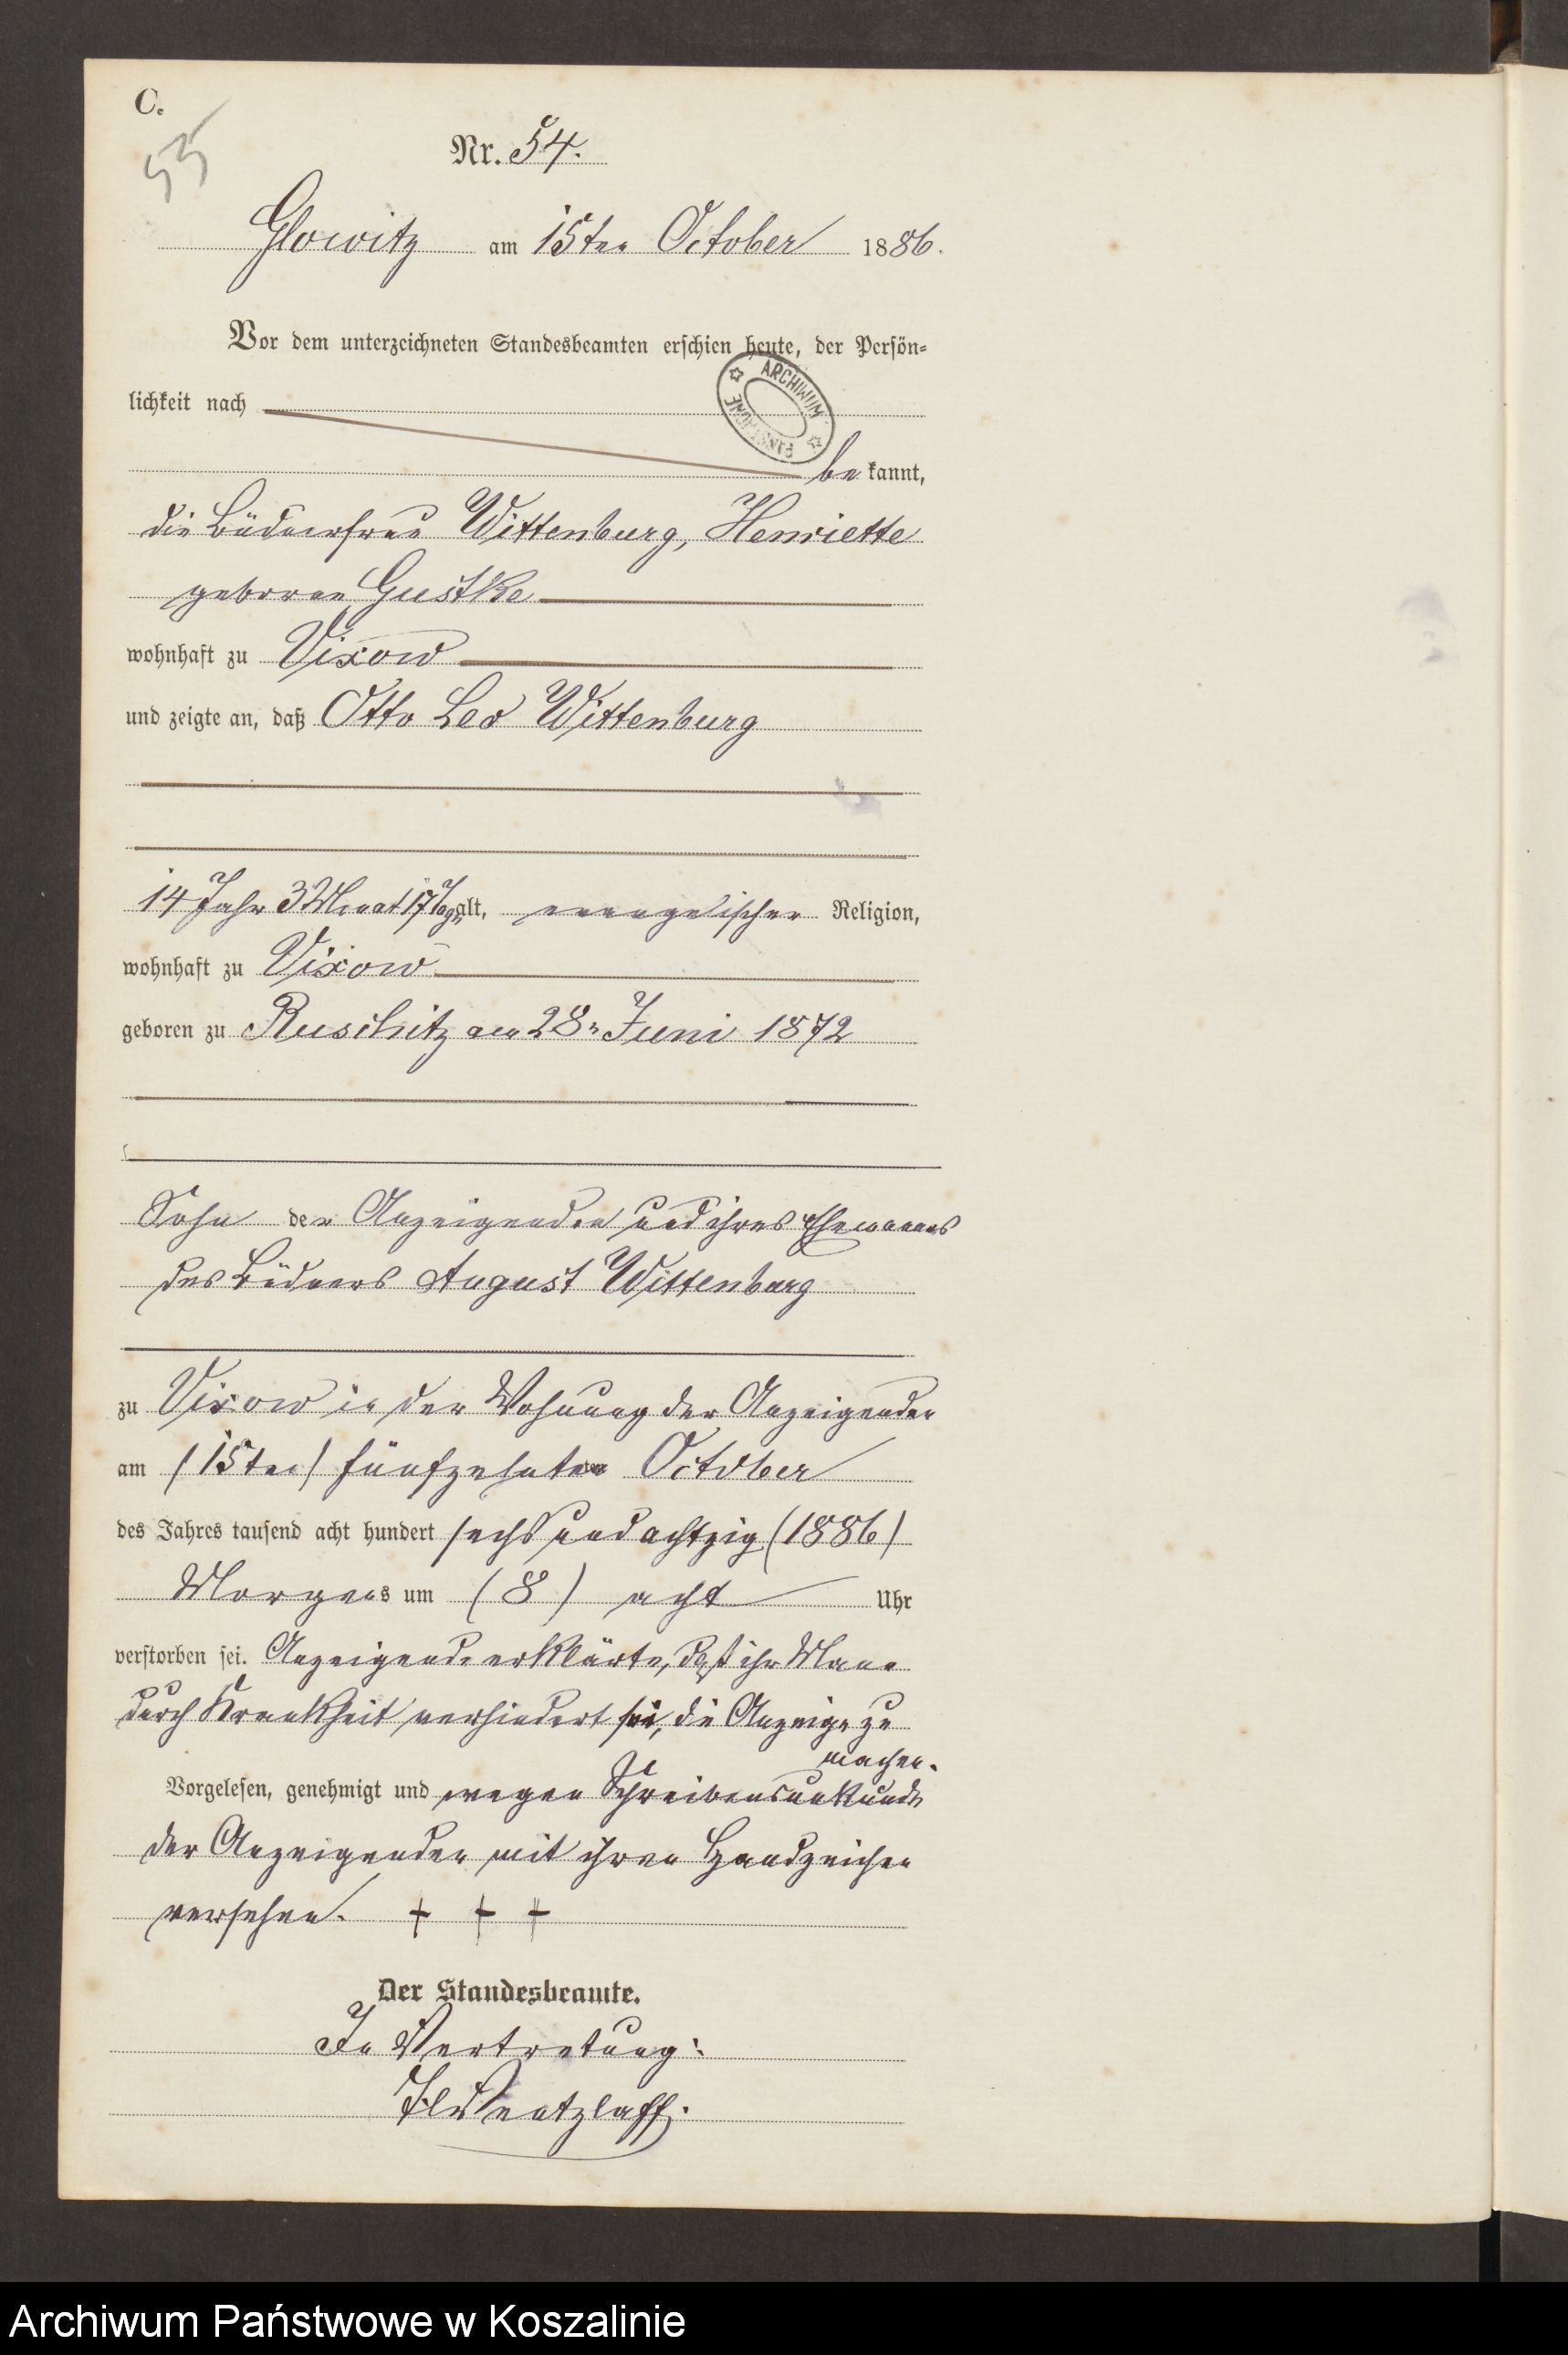 C.
55
Nr. 54.
Glowitz am 15ten October 1886.
Vor dem unterzeichneten Standesbeamten erschien heute, der Persön-
lichkeit nach
ARCHIWUM PAŃSTWOWE
bekannt,
die Büdnerfrau Wittenburg, Henriette
geborne Gustke
wohnhaft zu Vixow
und zeigte an, daß Otto Leo Wittenburg
14 Jahr 3 Monat 17 Tage alt, evangelischer Religion,
wohnhaft zu Vixow
geboren zu Ruschitz am 28n Juni 1872
Sohn der Anzeigenden und ihres Ehemanns
des Büdners August Wittenburg
zu Vixow in der Wohnung der Anzeigenden
am (15ten) fünfzehnten October
des Jahres tausend acht hundert sechs und achtzig (1886)
Morgens um (8) acht Uhr
verstorben sei. Anzeigende erklärte, daß ihr Mann
durch Krankheit verhindert sei, die Anzeige zu
machen.
Vorgelesen, genehmigt und wegen Schreibensunkunde
der Anzeigenden mit ihren Handzeichen
versehen. + + +
Der Standesbeamte.
In Vertretung:
Wentzlaff.
Archiwum Państwowe w Koszalinie